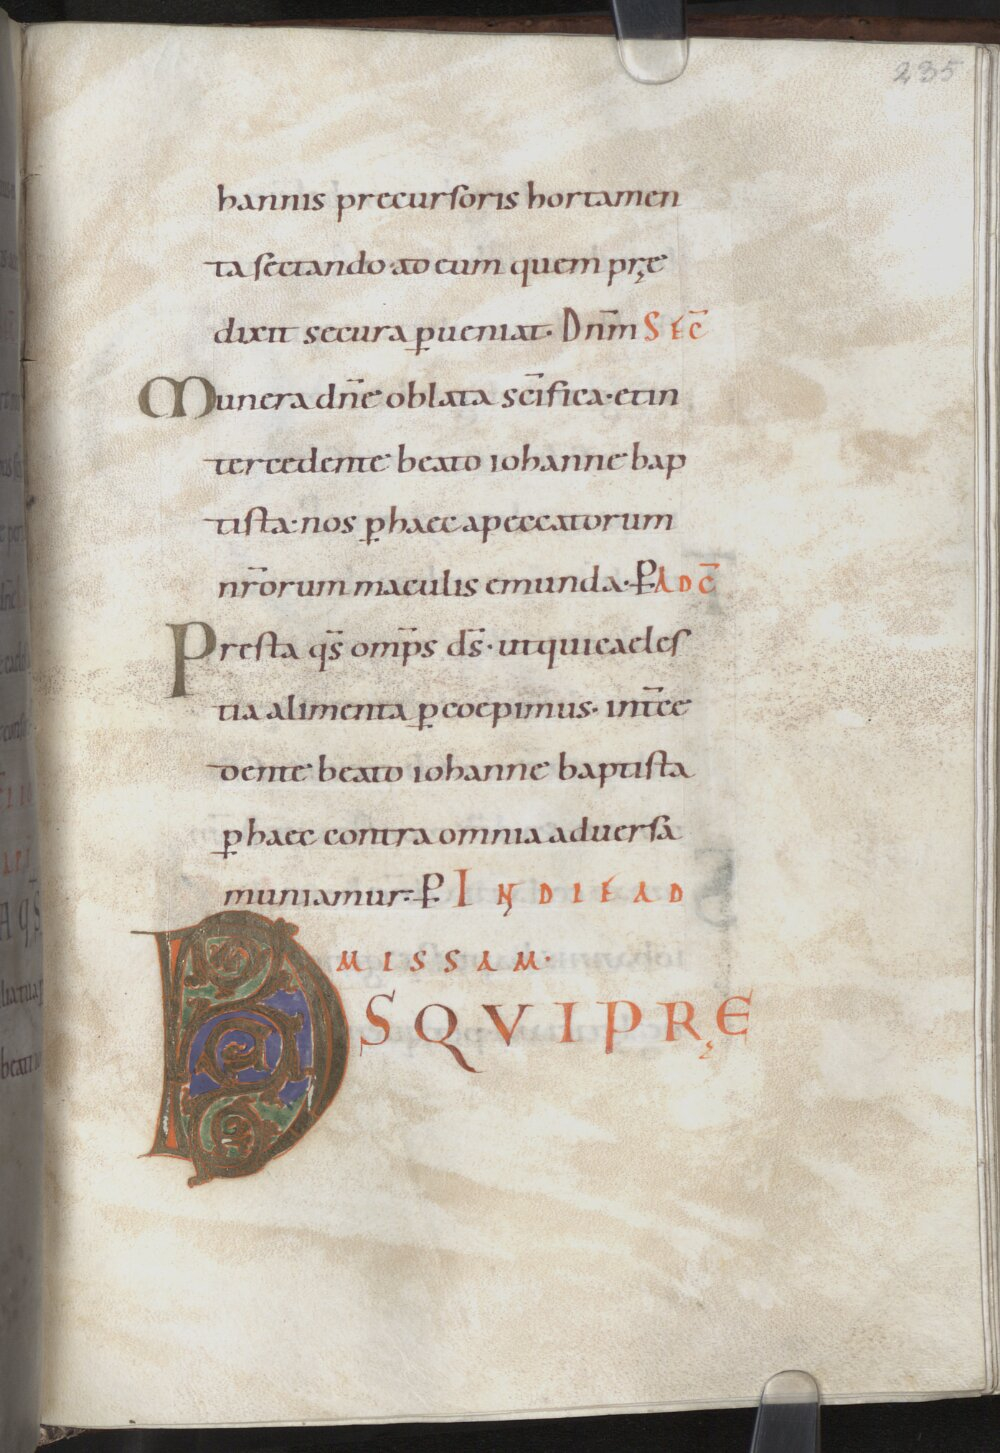 235
hannis precursoris hortamen
ta sectando· ad eum quem prę
dixit secura ꝑueniat· Dnm̄ SEC̄
Munera dn̄e oblata sc̄ifica· et in
tercedente beato iohanne bap
tista· nos ꝑ haec a peccatorum
nr̄orum maculis emunda· ꝑ ADC̄
Presta qs̄ omp̄s ds̄· ut qui caeles
tia alimenta ꝑcoepimus· int̄ce
dente beato iohanne baptista
ꝑ haec contra omnia aduersa
muniamur· ꝑ IN DIE AD
MISSAM·
DS QVI PRĘ